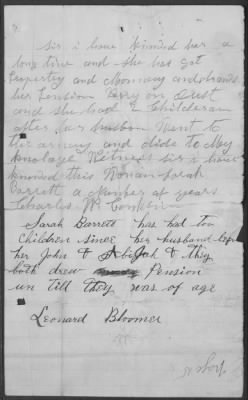 Sir i have knowed her a
long time and she has got
Property and Monney and draws
her Pension
and she had 2 Childeran
after her husban Went to
the army and dide to My
knolage Witness sir i have
knowed this Woman Sarah
Barrett a Number of years
Charles W Conklin
Sarah Barrett has had too
Children since her husband left
her John & Abijah & they
both drew Pension
un till they was of age
Leonard Bloomer